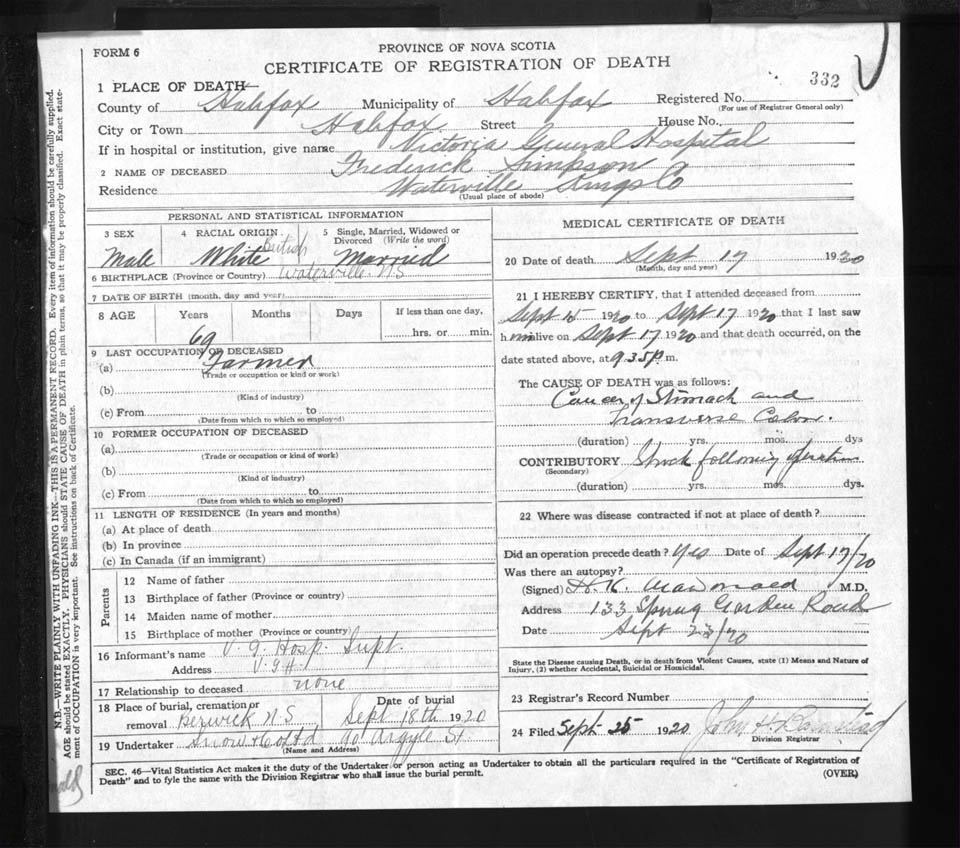 FORM 6
PROVINCE OF NOVA SCOTIA
CERTIFICATE OF REGISTRATION OF DEATH
332
1 PLACE OF DEATH
County of Halifax Municipality of Halifax Registered No.
(For use of Registrar General only)
City or Town Halifax Street House No.
If in hospital or institution, give name Victoria General Hospital
2 NAME OF DECEASED Frederick Simpson
Residence Waterville Kings Co
(Usual place of abode)
PERSONAL AND STATISTICAL INFORMATION
3 SEX 4 RACIAL ORIGIN 5 Single, Married, Widowed or Divorced (Write the word)
Male White British Married
6 BIRTHPLACE (Province or Country) Waterville N.S
7 DATE OF BIRTH (month, day and year)
8 AGE Years Months Days If less than one day,
69 hrs. or min.
9 LAST OCCUPATION OF DECEASED
(a) Farmer
(Trade or occupation or kind or work)
(b)
(Kind of industry)
(c) From to
(Date from which to which so employed)
10 FORMER OCCUPATION OF DECEASED
(a)
(Trade or occupation or kind of work)
(b)
(Kind of industry)
(c) From to
(Date from which to which so employed)
11 LENGTH OF RESIDENCE (In years and months)
(a) At place of death
(b) In province
(c) In Canada (if an immigrant)
Parents
12 Name of father
13 Birthplace of father (Province or country)
14 Maiden name of mother
15 Birthplace of mother (Province or country)
16 Informant's name V. G. Hosp. Supt.
Address V. G H.
17 Relationship to deceased none
18 Place of burial, cremation or removal Berwick N S Date of burial Sept 18th 1920
19 Undertaker Snow & Co Ltd 90 Argyle St
(Name and Address)
MEDICAL CERTIFICATE OF DEATH
20 Date of death Sept 17 1920
(Month, day and year)
21 I HEREBY CERTIFY, that I attended deceased from
Sept 15 1920 to Sept 17 1920 that I last saw
him alive on Sept 17 1920 and that death occurred, on the
date stated above, at 9.35 p.m.
The CAUSE OF DEATH was as follows:
Cancer of Stomach and
Transverse Colon.
(duration) yrs. mos. dys
CONTRIBUTORY Shock following operation
(Secondary)
(duration) yrs. mos. dys.
22 Where was disease contracted if not at place of death?
Did an operation precede death? Yes Date of Sept 17/20
Was there an autopsy?
(Signed) H. K. MacDonald M.D.
Address 133 Spring Garden Road
Date Sept 23/20
State the Disease causing Death, or in death from Violent Causes, state (1) Means and Nature of
Injury, (2) whether Accidental, Suicidal or Homicidal.
23 Registrar's Record Number
24 Filed Sept 25 1920 John H.
Division Registrar
SEC. 46—Vital Statistics Act makes it the duty of the Undertaker or person acting as Undertaker to obtain all the particulars required in the "Certificate of Registration of
Death" and to fyle the same with the Division Registrar who shall issue the burial permit.
(OVER)
N.B.—WRITE PLAINLY WITH UNFADING INK—THIS IS A PERMANENT RECORD. Every item of information should be carefully supplied.
AGE should be stated EXACTLY. PHYSICIANS should STATE CAUSE OF DEATH in plain terms, so that it may be properly classified. Exact state-
ment of OCCUPATION is very important. See instructions on back of Certificate.